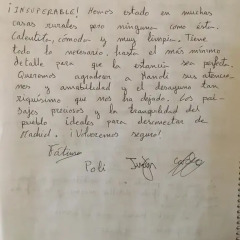 ¡INSUPERABLE! Hemos estado en muchas
casas rurales pero ninguna como ésta.
Calentita, cómoda y muy limpia. Tiene
todo lo necesario, hasta el más mínimo
detalle para que la estancia sea perfecta.
Queremos agradecer a Manoli sus atencio-
nes y amabilidad y el desayuno tan
riquísimo que nos ha dejado. Los pai-
sajes preciosos y la tranquilidad del
pueblo ideales para desconectar de
Madrid. ¡Volveremos seguro!
Fátima
Poli